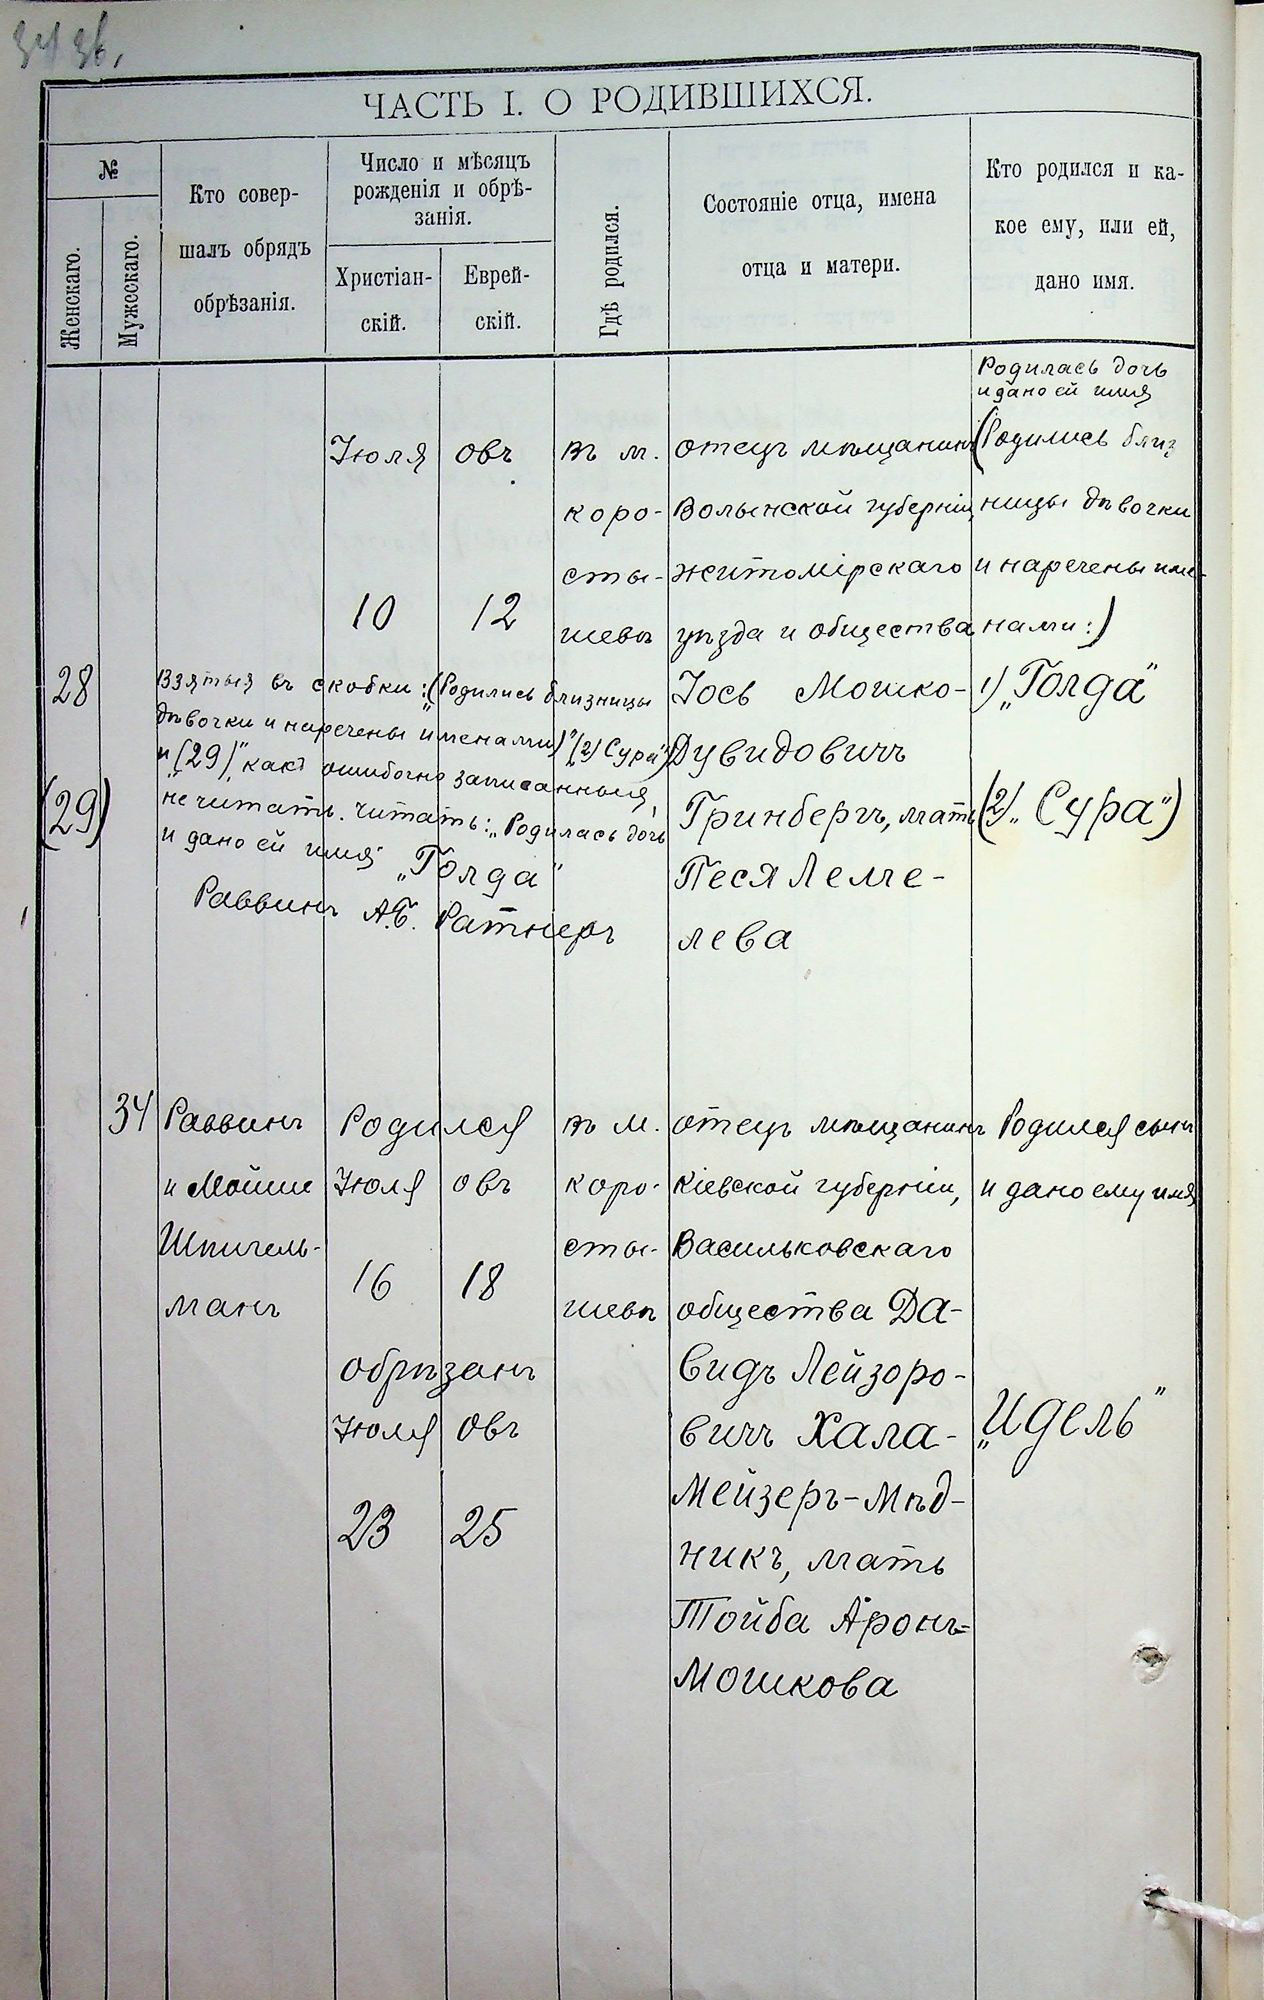 ЧАСТЬ I. О РОДИВШИХСЯ.
№
Женскаго.
Мужескаго.
Кто совер-
шалъ обрядъ
обрѣзанія.
Число и мѣсяцъ
рожденія и обрѣ-
занія.
Христіан-
скій.
Еврей-
скій.
Гдѣ родился.
Состояніе отца, имена
отца и матери.
Кто родился и ка-
кое ему, или ей,
дано имя.
28
(29)
Взятыя въ скобки: „(Родились близницы
дѣвочки и наречены именами)" (2) Сура")
и „(29)", какъ ошибочно записанныя,
не читать. Читать: „Родилась дочь
и дано ей имя „Голда"
Раввинъ А.Б. Ратнеръ
Іюля
10
овъ
12
въ м.
коро-
сты-
шевѣ
отецъ мѣщанинъ
Волынской губерніи,
житомірскаго
уѣзда и общества
Іось Мошко-
Дувидовичъ
Гринбергъ, мать
Песя Лемче-
лева
Родилась дочь
и дано ей имя
(Родились близ
ницы дѣвочки
и наречены име-
нами:)
1) „Голда"
(2) „Сура")
34
Раввинъ
и Мойше
Шпигель-
манъ
Родился
Іюля овъ
16 18
обрѣзанъ
Іюля овъ
23 25
въ м.
коро-
сты-
шевѣ
отецъ мѣщанинъ
Кіевской губерніи,
Васильковскаго
общества Да-
видъ Лейзоро-
вичъ Хала-
Мейзеръ-Мѣд-
никъ, мать
Тойба Аронъ=
Мошкова
Родился сынъ
и дано ему имя
„Идель"